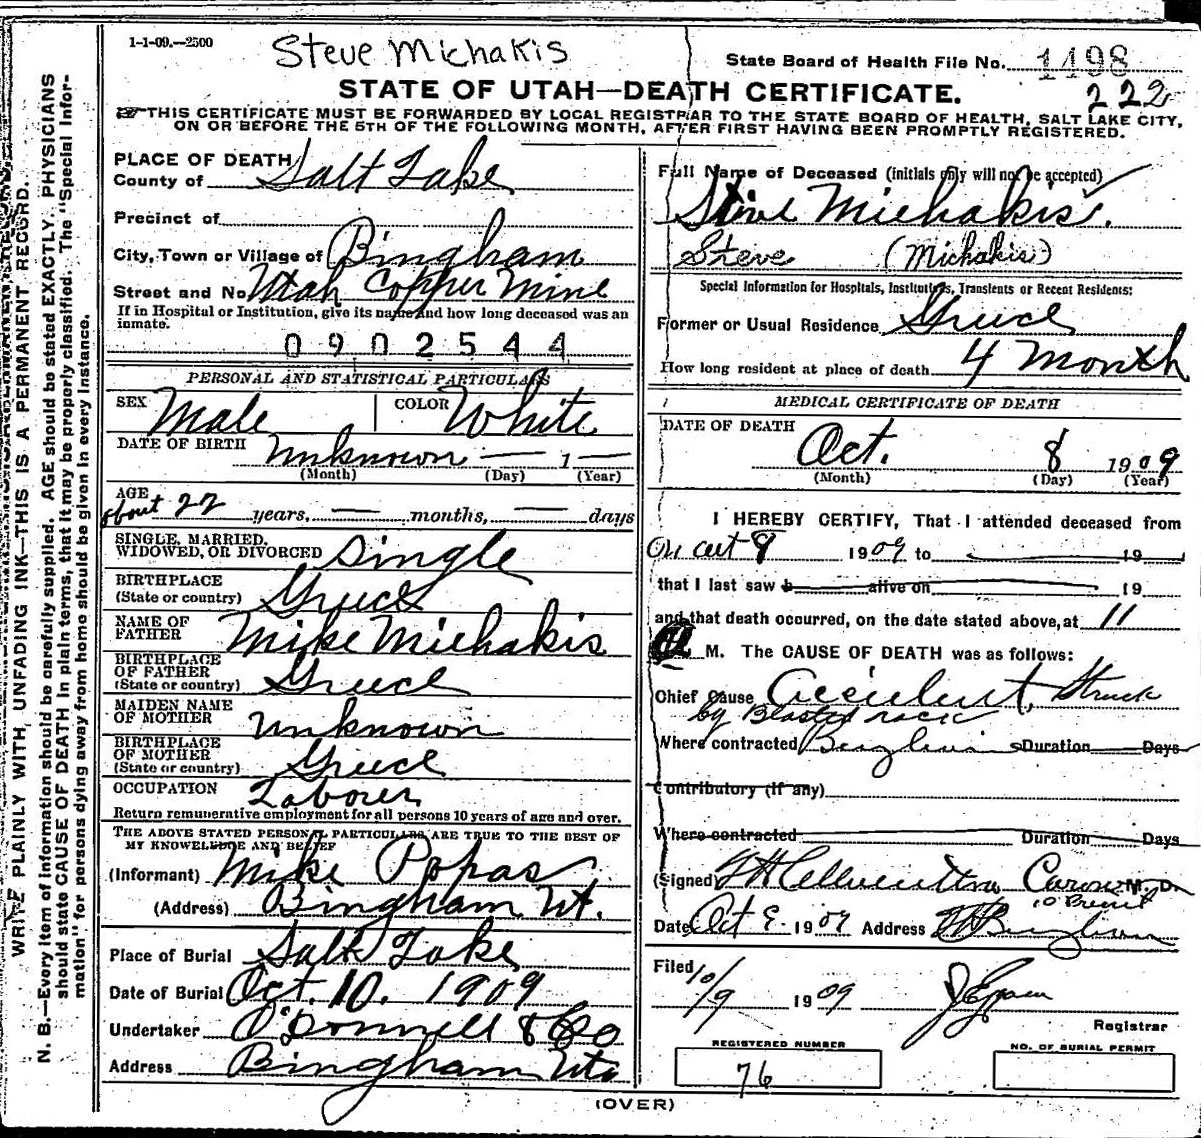 1-1-09.—2500
Steve Michakis
State Board of Health File No. 1498
222
STATE OF UTAH—DEATH CERTIFICATE.
THIS CERTIFICATE MUST BE FORWARDED BY LOCAL REGISTRAR TO THE STATE BOARD OF HEALTH, SALT LAKE CITY,
ON OR BEFORE THE 5TH OF THE FOLLOWING MONTH, AFTER FIRST HAVING BEEN PROMPTLY REGISTERED.
WRITE PLAINLY WITH UNFADING INK—THIS IS A PERMANENT RECORD.
N. B.—Every item of information should be carefully supplied. AGE should be stated EXACTLY. PHYSICIANS
should state CAUSE OF DEATH in plain terms, that it may be properly classified. The "Special Infor-
mation" for persons dying away from home should be given in every instance.
PLACE OF DEATH
County of Salt Lake
Precinct of
City, Town or Village of Bingham
Street and No. Utah Copper Mine
If in Hospital or Institution, give its name and how long deceased was an
inmate.
0902544
PERSONAL AND STATISTICAL PARTICULARS
SEX Male COLOR White
DATE OF BIRTH Unknown — 1 —
(Month) (Day) (Year)
AGE
about 22 years, — months, — days
SINGLE, MARRIED,
WIDOWED, OR DIVORCED Single
BIRTHPLACE
(State or country) Greece
NAME OF
FATHER Mike Michakis
BIRTHPLACE
OF FATHER
(State or country) Greece
MAIDEN NAME
OF MOTHER Unknown
BIRTHPLACE
OF MOTHER
(State or country) Greece
OCCUPATION Laborer
Return remunerative employment for all persons 10 years of age and over.
THE ABOVE STATED PERSONAL PARTICULARS ARE TRUE TO THE BEST OF
MY KNOWLEDGE AND BELIEF
(Informant) Mike Popas
(Address) Bingham Ut.
Place of Burial Salt Lake
Date of Burial Oct. 10. 1909
Undertaker O'Donnell & Co
Address Bingham Utah
Full Name of Deceased (initials only will not be accepted)
Stive Michakis.
Steve (Michakis)
Special Information for Hospitals, Institutions, Transients or Recent Residents:
Former or Usual Residence Greece
How long resident at place of death 4 Month
MEDICAL CERTIFICATE OF DEATH
DATE OF DEATH
Oct. 8 1909
(Month) (Day) (Year)
I HEREBY CERTIFY, That I attended deceased from
Oct 8 1909 to 19
that I last saw h alive on 19
and that death occurred, on the date stated above, at 11
M. The CAUSE OF DEATH was as follows:
Chief Cause Accident, Struck
by Blasted rock
Where contracted Bingham Duration Days
Contributory (if any)
Where contracted Duration Days
(Signed) M. D.
Date Oct 9 1909 Address Bingham
Filed 10/9 1909
Registrar
REGISTERED NUMBER
76
NO. OF BURIAL PERMIT
(OVER)